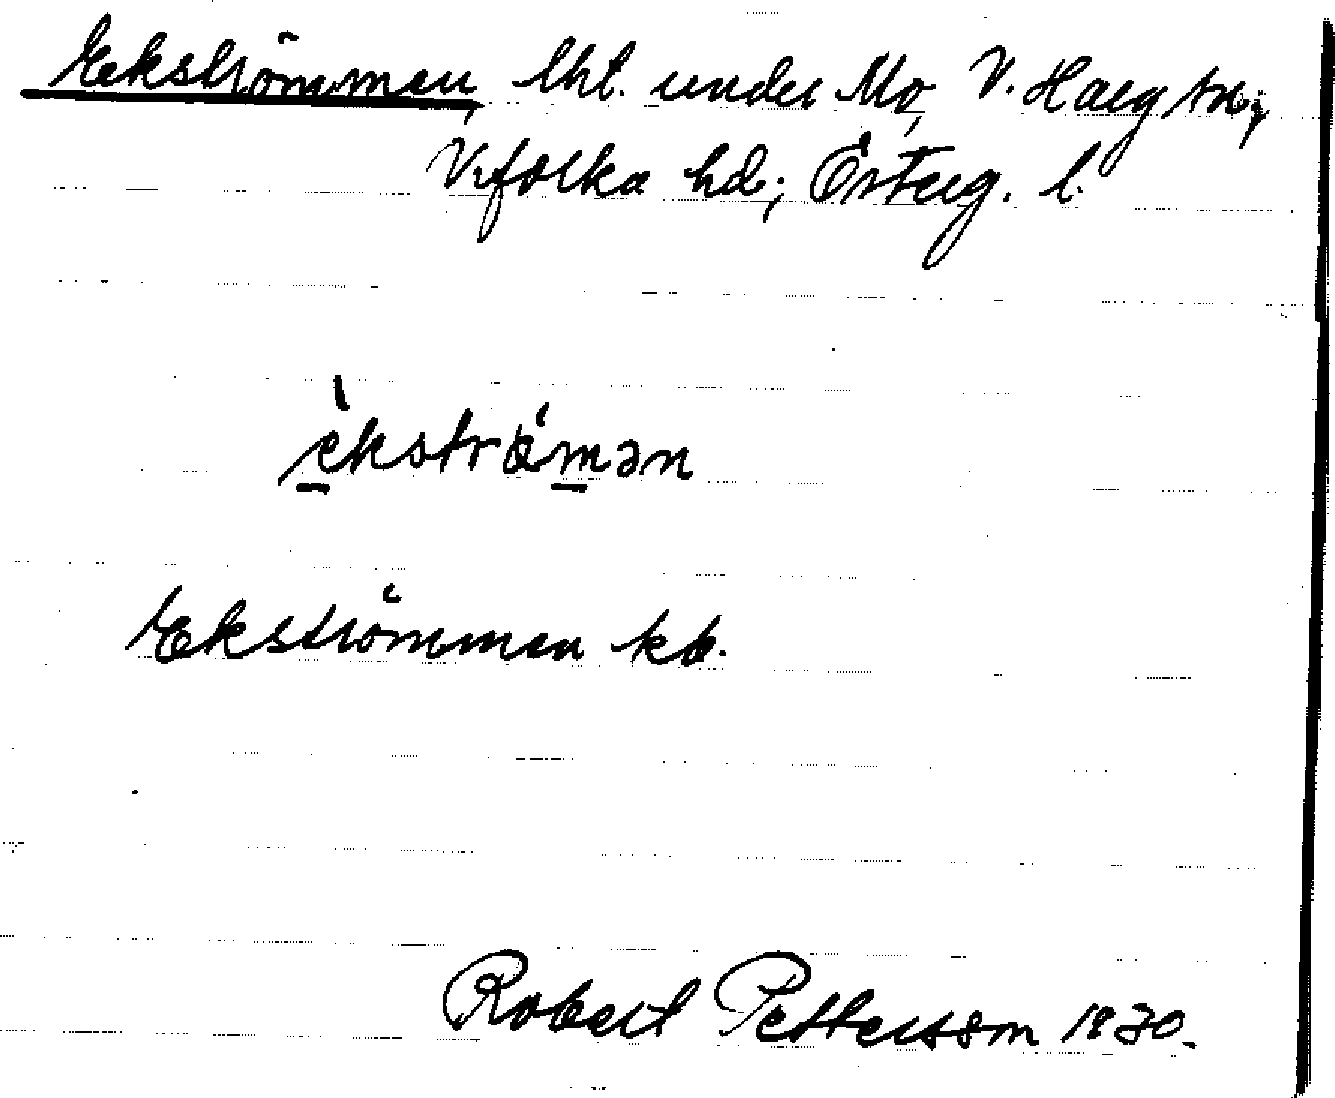 Ekströmmen, lht. under Mo, V. Harg sn;
Vifolka hd; Österg. l.
èkstrǿmən
Ekströmmen kb.
Robert Pettersson 1930.